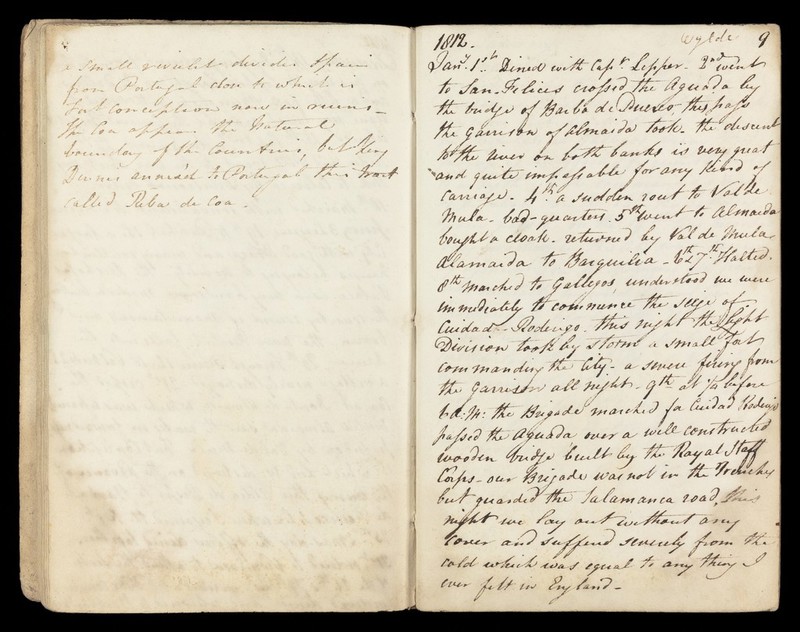 a small rivulet divides Spain
from Portugal close to which is
Fort Conception now in ruins -
The Coa appears the Natural
boundary of the Countries, but King
Dennis annexed to Portugal this tract
called Riba de Coa -
Wylde 9
1812 -
Jany. 1st. Dined with Capt. Lepper - 2nd went
to San-Felices crossed the Aguada by
the bridge of Barba del Puerco this pass
the garrison of Almaida took - the descent
to the river on both banks is very great
and quite impassable for any kind of
Carriage - 4th. a sudden rout to Val de
Mula - bad-quarters. 5th went to Almaida
bought a cloak - returned by Val de Mula
Alamaida to Barquilia - 6th & 7th Halted -
8th marched to Gallegos understood we were
immediately to commence the seige of
Cuidad - Roderigo - this night the Light
Division took by storm a small fort
commanding the City - a severe firing from
the Garrison all night - 9th at ½ before
6 A:M: the Brigade marched for Cuidad Roderigo
passed the Aguada over a well constructed
wooden bridge built by the Royal Staff
Corps - our Brigade was not in the Trenches
but guarded the Salamanca road, this
night we lay out without any
cover and suffered severely from the
cold which was equal to any thing I
ever felt in England -